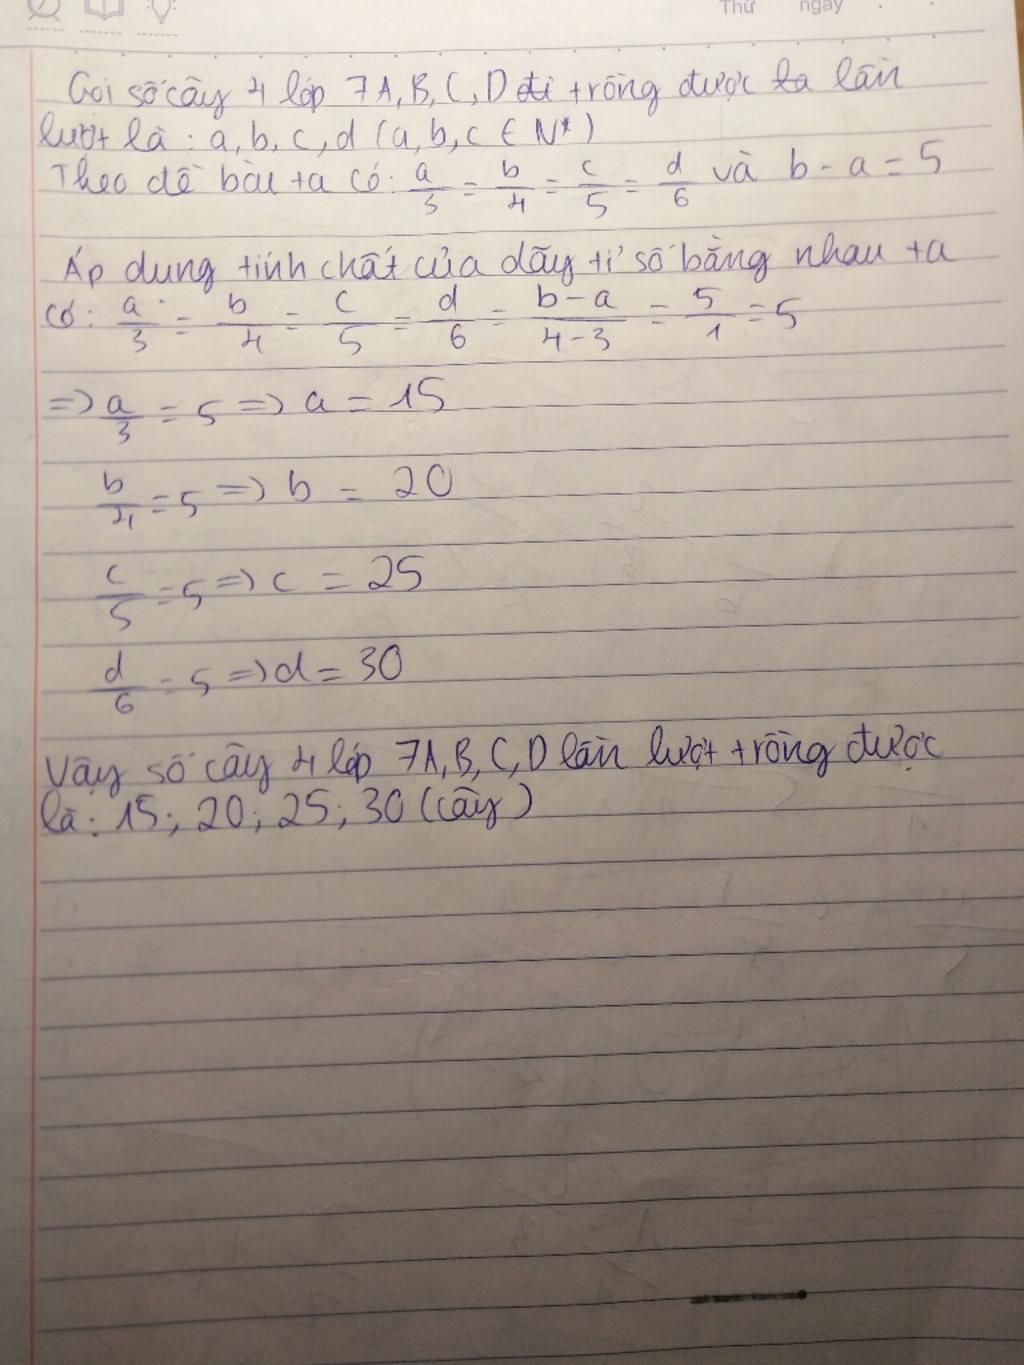 Thứ ngày
Gọi số cây 4 lớp 7A, B, C, D đi trồng được ta lần
lượt là: a, b, c, d (a, b, c ∈ N*)
Theo đề bài ta có: a/3 = b/4 = c/5 = d/6 và b - a = 5
Áp dụng tính chất của dãy tỉ số bằng nhau ta
có: a/3 = b/4 = c/5 = d/6 = b-a/4-3 = 5/1 = 5
=> a/3 = 5 => a = 15
b/4 = 5 => b = 20
c/5 = 5 => c = 25
d/6 = 5 => d = 30
Vậy số cây 4 lớp 7A, B, C, D lần lượt trồng được
là: 15; 20; 25; 30 (cây)